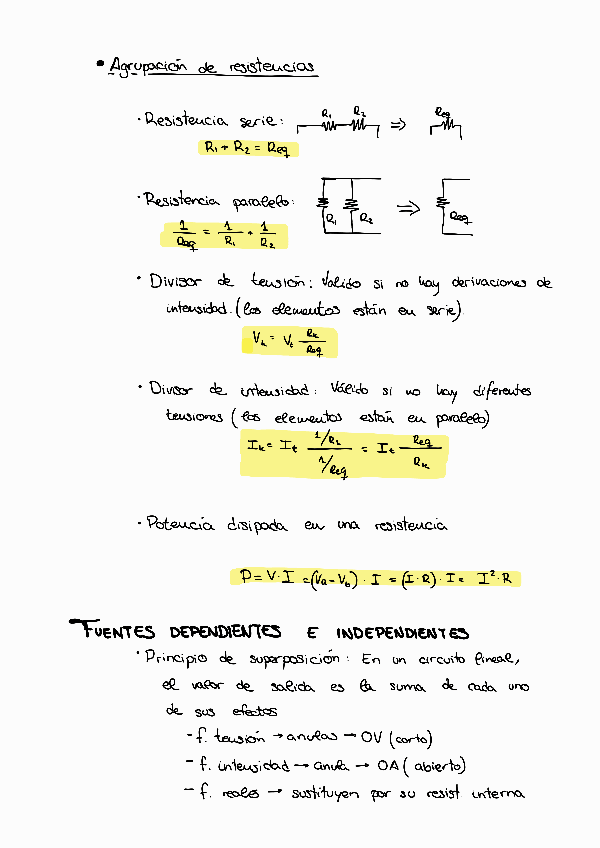 • Agrupación de resistencias
· Resistencia serie: R1 R2 ⇒ Req
R1 + R2 = Req
· Resistencia paralelo: R1 R2 ⇒ Req
1/Req = 1/R1 + 1/R2
· Divisor de tensión: Valido si no hay derivaciones de
intensidad. (los elementos están en serie).
Vk = Vt Rk/Req
· Divisor de intensidad: Válido si no hay diferentes
tensiones (los elementos están en paralelo)
Ik = It (1/Rk)/(1/Req) = It Req/Rk
· Potencia disipada en una resistencia
P = V·I = (Va - Vb) · I = (I·R) · I = I²·R
FUENTES DEPENDIENTES E INDEPENDIENTES
· Principio de superposición: En un circuito lineal,
el valor de salida es la suma de cada uno
de sus efectos
- f. tensión → anulas → 0V (corto)
- f. intensidad → anula → 0A (abierto)
- f. reales → sustituyen por su resist interna